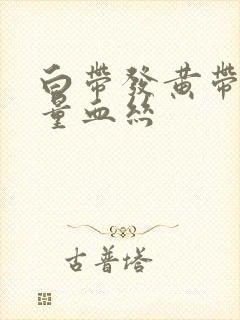 白帶發黃帶
量血絲
古普塔